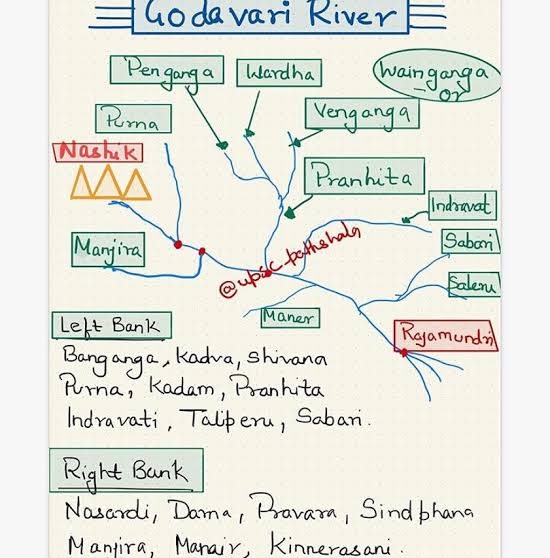 Godavari River
Penganga
Wardha
Wainganga
or
Venganga
Purna
Nashik
Pranhita
Indravat
Sabari
Manjira
@upsc_pathshala
Saleru
Maner
Rajamundri
Left Bank
Banganga, Kadva, Shivana
Purna, Kadam, Pranhita
Indravati, Taliperu, Sabari.
Right Bank
Nasardi, Darna, Pravara, Sindphana
Manjira, Manair, Kinnerasani.